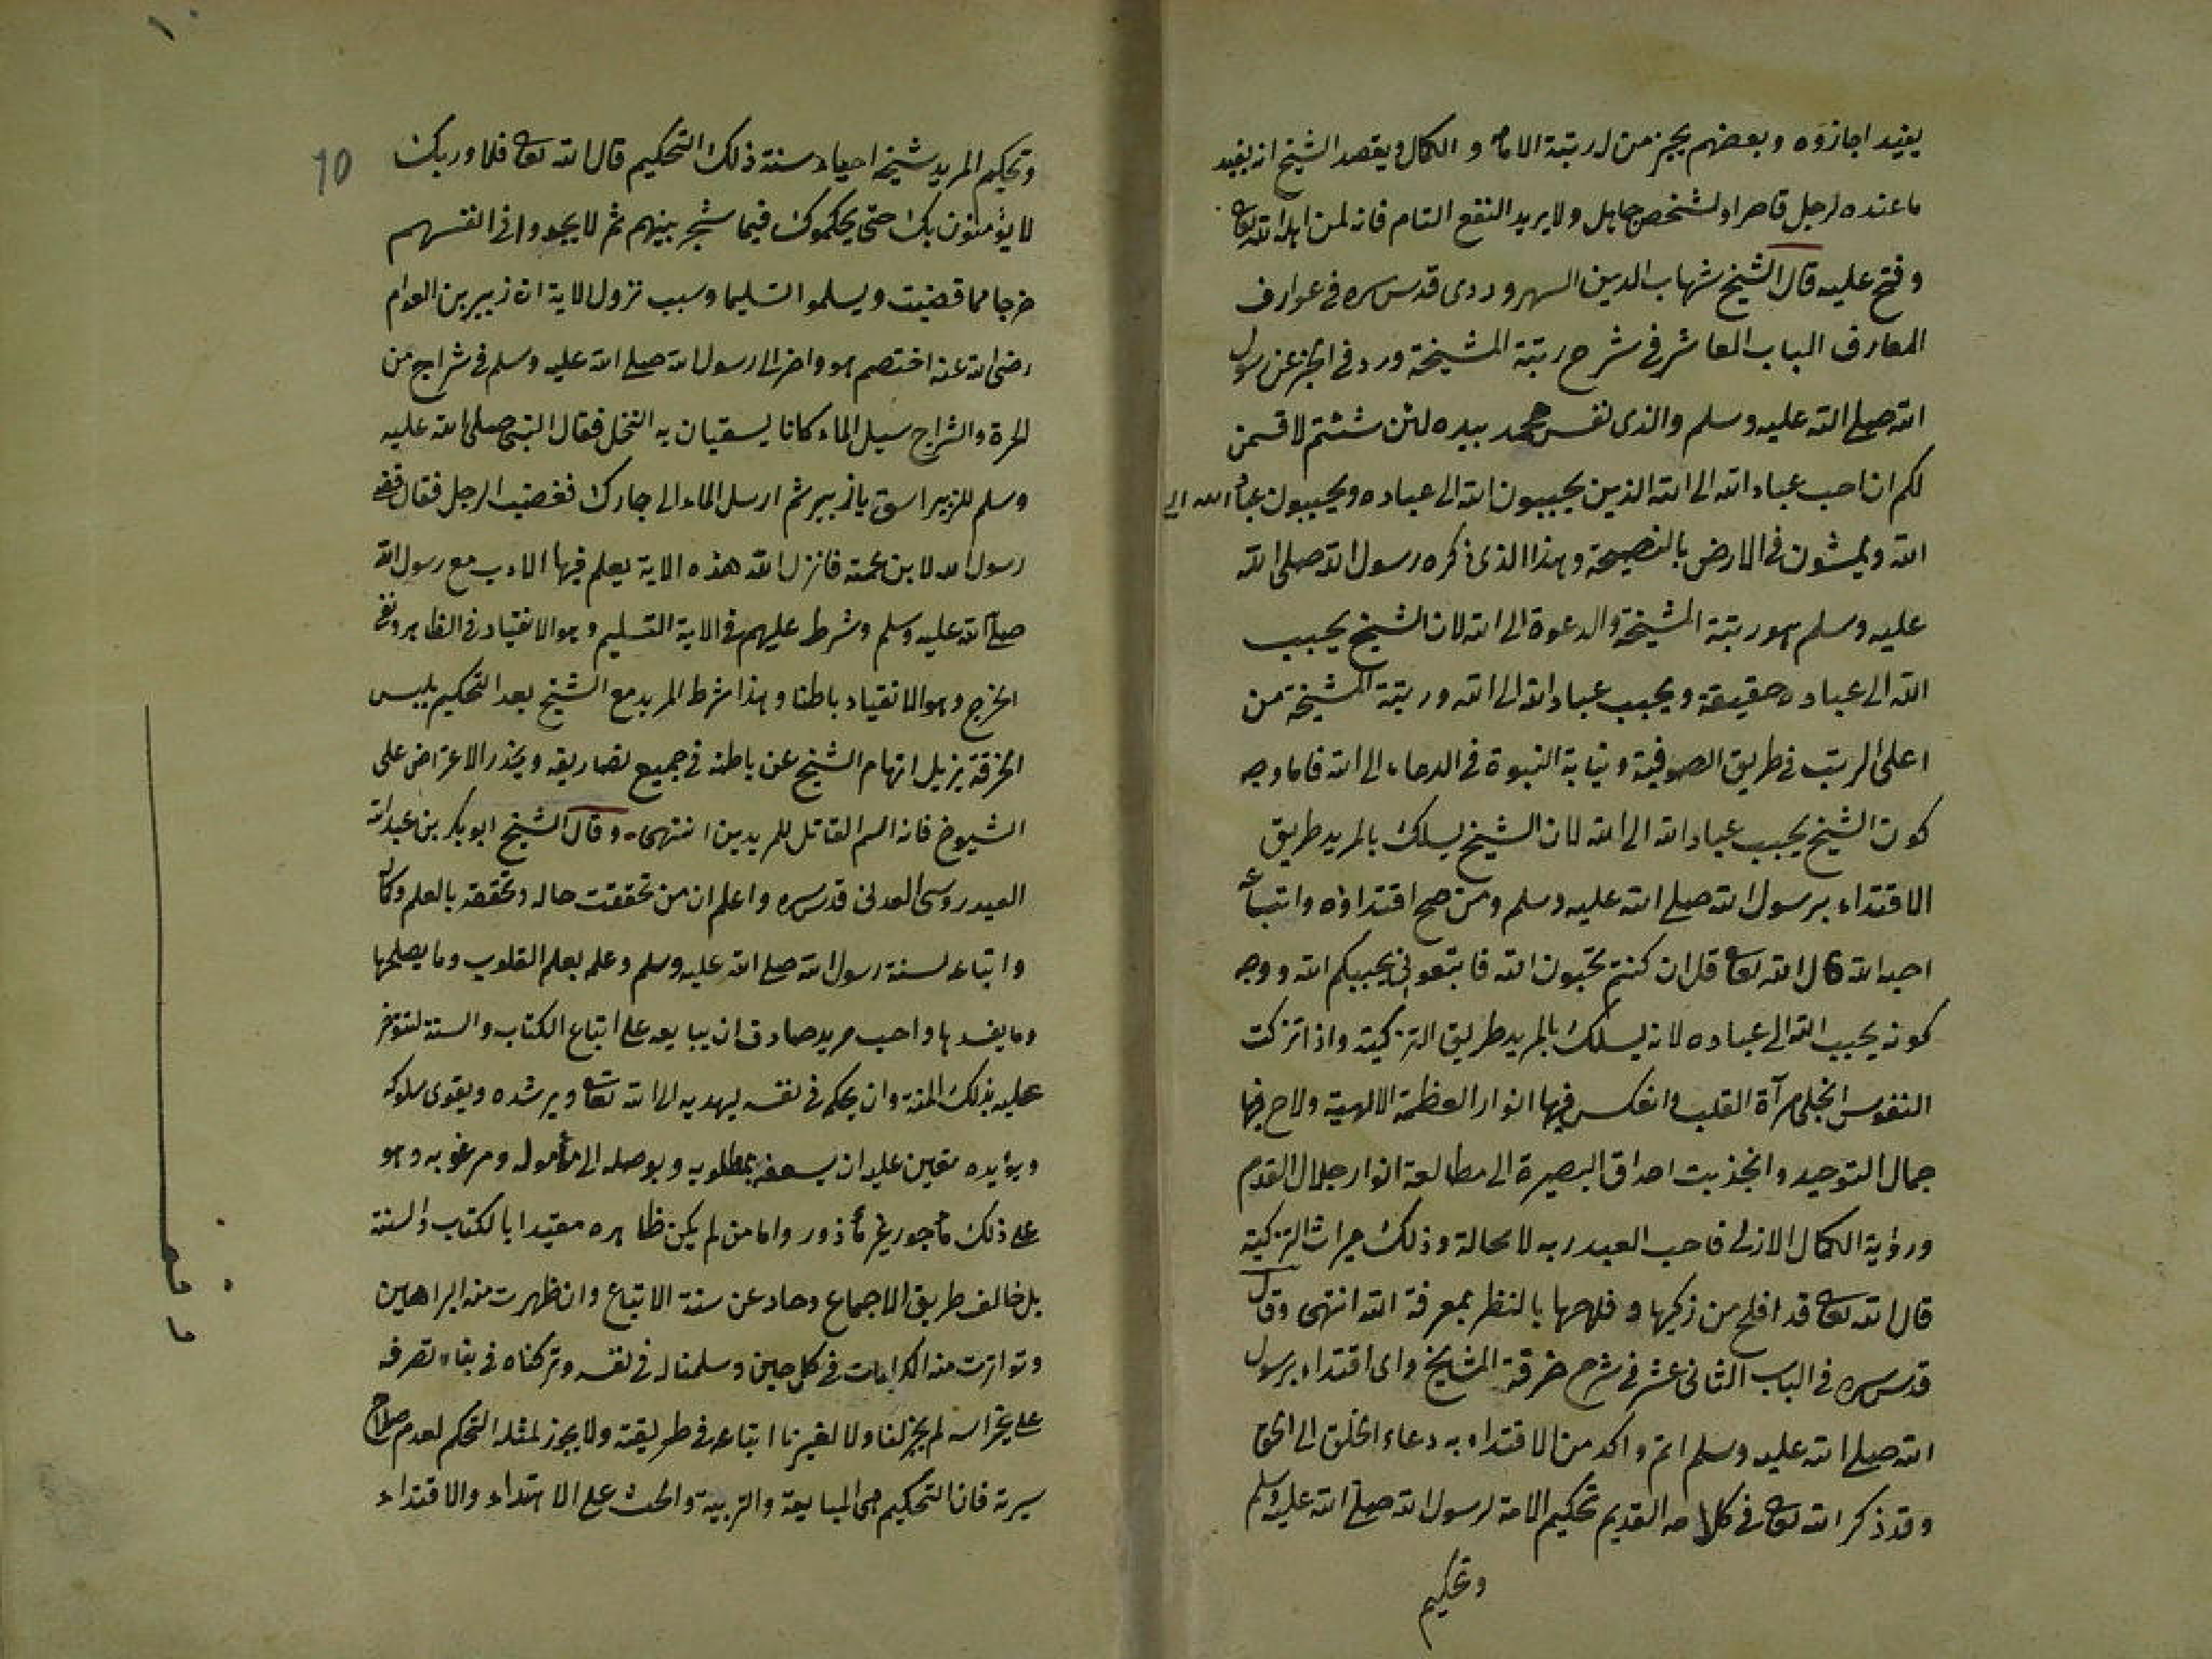 يفيد اجازوه وبعضهم يجيز من له رتبة الامامة والكمال ويقصد الشيخ انه يفيد
ما عنده لرجل قاصر او لشخص جاهل ولا يريد النفع التام فانه لمن اهله الله تعالى
وفتح عليه قال الشيخ شهاب الدين السهروردى قدس سره فى عوارف
المعارف الباب العاشر فى شرح رتبة المشيخة ورد فى الخبر عن رسول
الله صلى الله عليه وسلم والذى نفس محمد بيده لئن شئتم لاقسمن
لكم ان احب عباد الله الى الله الذين يحببون الله الى عباده ويحببون عباد الله الى
الله ويمشون فى الارض بالنصيحة وهذا الذى ذكره رسول الله صلى الله
عليه وسلم هو رتبة المشيخة والدعوة الى الله لان الشيخ يحبب
الله الى عباده حقيقة ويحبب عباد الله الى الله ورتبة المشيخة من
اعلى الرتب فى طريق الصوفية ونيابة النبوة فى الدعاء الى الله فاما وجه
كون الشيخ يحبب عباد الله الى الله لان الشيخ يسلك بالمريد طريق
الاقتداء برسول الله صلى الله عليه وسلم ومن صح اقتداؤه واتباعه
احبه الله قال الله تعالى قل ان كنتم تحبون الله فاتبعونى يحببكم الله ووجه
كونه يحبب الله الى عباده لانه يسلك بالمريد طريق التزكية واذا تزكت
النفوس انجلى مرآة القلب وانعكس فيها انوار العظمة الالهية ولاح فيها
جمال التوحيد وانجذبت احداق البصيرة الى مطالعة انوار جلال القدم
ورؤية الكمال الازلى فاحب العبد ربه لا محالة وذلك ميراث التزكية
قال الله تعالى قد افلح من زكيها وفلاحها بالظفر بمعرفة الله انتهى وقال
قدس سره فى الباب الثانى عشر فى شرح خرقة المشايخ واى اقتداء برسول
الله صلى الله عليه وسلم اتم واكد من الاقتداء به دعاء الخلق الى الحق
وقد ذكر الله تعالى فى كلامه القديم تحكيم الامة لرسول الله صلى الله عليه وسلم
وتحكيم
10
وتحكيم المريد شيخه احياء سنة ذلك التحكيم قال الله تعالى فلا وربك
لا يؤمنون بك حتى يحكموك فيما شجر بينهم ثم لا يجدوا فى انفسهم
حرجا مما قضيت ويسلموا تسليما وسبب نزول الاية ان زبير بن العوام
رضى الله عنه اختصم هو واخر الى رسول الله صلى الله عليه وسلم فى شراج من
الحرة والشراج سيل الماء كانا يسقيان به النخل فقال النبى صلى الله عليه
وسلم للزبير اسق يا زبير ثم ارسل الماء الى جارك فغضب الرجل فقال قضى
رسول الله لابن عمته فانزل الله هذه الاية يعلم فيها الادب مع رسول الله
صلى الله عليه وسلم وشرط عليهم فى الاية التسليم وهو الانقياد فى الظاهر ونفى
الحرج وهو الانقياد باطنا وهذا شرط المريد مع الشيخ بعد التحكيم بلبس
الخرقة يزيل اتهام الشيخ عن باطنه فى جميع تصاريفه ويحذر الاعتراض على
الشيوخ فانه السم القاتل للمريدين انتهى وقال الشيخ ابو بكر بن عبد الله
العيدروسى العدنى قدس سره واعلم ان من تحققت حاله وتحققه بالعلم وكماله
واتباعه لسنة رسول الله صلى الله عليه وسلم وعلمه بعلم القلوب وما يصلحها
وما يفسدها واحب مريد صادق ان يبايعه على اتباع الكتاب والسنة لتتوفر
عليه بذلك المنة وان يحكم فى نفسه ليهديه الى الله تعالى ويرشده ويقوى سلوكه
ويؤيده تعين عليه ان يسعفه بمطلوبه ويوصله الى مأموله ومرغوبه وهو
على ذلك مأجور غير مأذور واما من لم يكن ظاهره مقيدا بالكتاب والسنة
بل خالف طريق الاجماع وحاد عن سنة الاتباع وان ظهرت منه البراهين
وتواترت منه الكرامات فى كل حين وسلمنا له فى نفسه وتركناه فى بناء تصرفه
على غير اسه لم يجز لنا ولا لغيرنا اتباعه فى طريقته ولا يجوز لمثله التحكم لعدم صلاح
سيرته فان التحكيم هى المبايعة والتربية والحث على الاهتداء والاقتداء